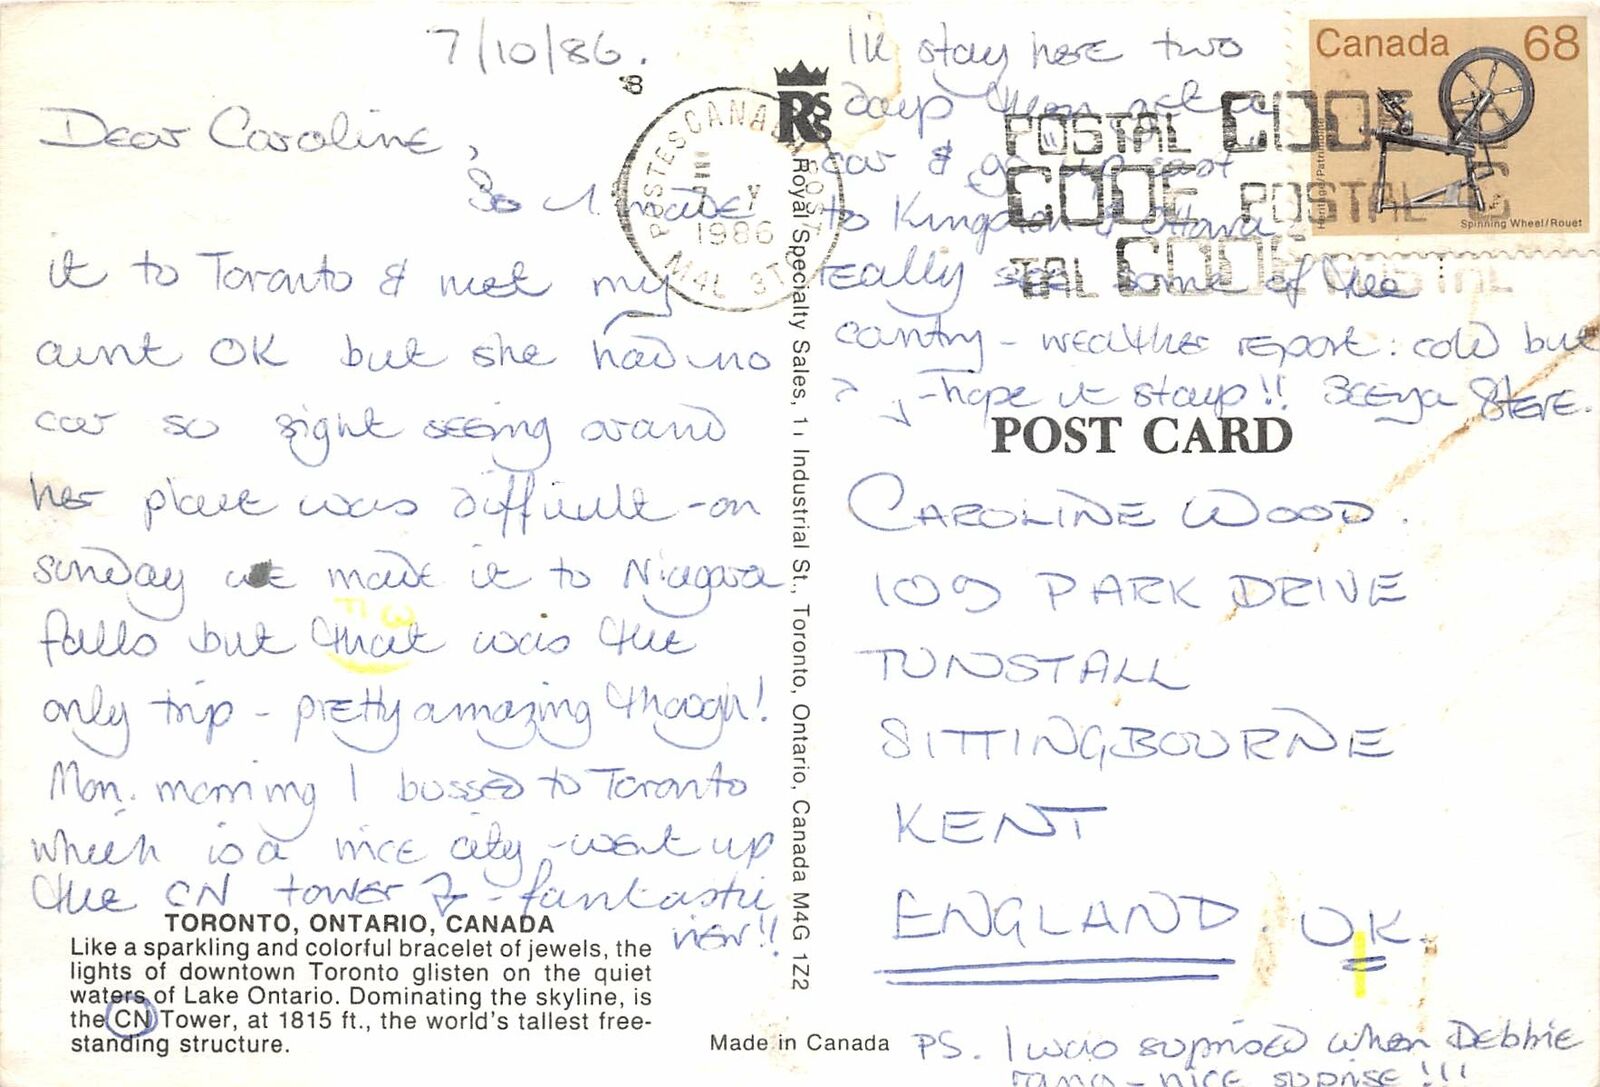 7/10/86.
Dear Caroline,
So I made
it to Toronto & met my
aunt OK but she had no
car so sight seeing around
her place was difficult - on
Sunday we made it to Niagara
falls but that was the
only trip - pretty amazing though!
Mon. morning I bussed to Toronto
which is a nice city - went up
the CN tower - fantastic
view!!
TORONTO, ONTARIO, CANADA
Like a sparkling and colorful bracelet of jewels, the
lights of downtown Toronto glisten on the quiet
waters of Lake Ontario. Dominating the skyline, is
the CN Tower, at 1815 ft., the world's tallest free-
standing structure.
8
POSTES CANADA POST
1986
M4L 3T
RSS
Royal Specialty Sales, 11 Industrial St., Toronto, Ontario, Canada M4G 1Z2
Made in Canada
I'll stay here two
days then get a
car & go up east
to Kingston & Ottawa
really see some of the
country - weather report: cold but
- hope it stays!! Beeya Steve.
Canada 68
Heritage/Patrimoine
Spinning Wheel/Rouet
POSTAL CODE
CODE POSTAL
POSTAL CODE
CODE POSTAL
POST CARD
CAROLINE WOOD.
109 PARK DRIVE
TUNSTALL
SITTINGBOURNE
KENT
ENGLAND. UK.
PS. I was suprised when Debbie
rang - nice suprise!!!